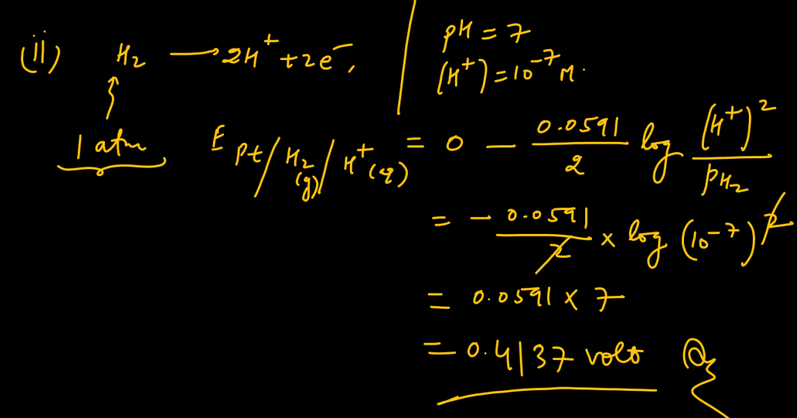 (ii) H2 ⟶ 2H+ + 2e−,
1 atm
pH = 7
(H+) = 10−7 M.
E Pt/H2(g)/H+(aq) = 0 − 0.0591/2 log (H+)2/PH2
= − 0.0591/2 × log (10−7)2
= 0.0591 × 7
= 0.4137 volt